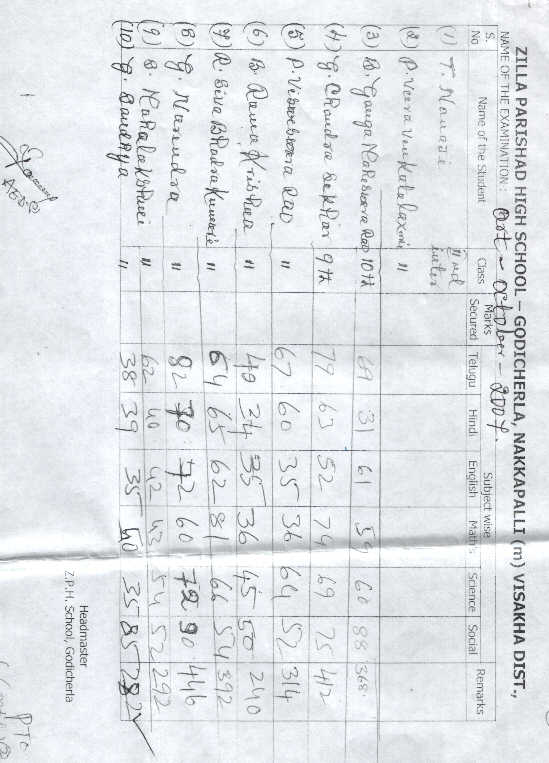 ZILLA PARISHAD HIGH SCHOOL – GODICHERLA, NAKKAPALLI (m) VISAKHA DIST.,
NAME OF THE EXAMINATION : October – 2004.
S. No Name of the Student Class Marks Secured Subject wise Remarks
Telugu Hindi English Maths Science Social
(1) T. II nd inter
(2) P. Veera Venkatalaxmi "
(3) B. Ganga Maheswara Rao 10th 69 31 61 59 60 88 368
(4) G. Chandra Sekhar 9th 79 63 52 74 69 75 412
(5) P. Visweswara Rao " 67 60 35 36 64 52 314
(6) B. Rama Krishna " 40 34 35 36 45 50 240
(7) R. Siva Bhadra Kumari " 64 65 62 81 66 54 392
(8) G. Narendra " 82 70 72 60 72 90 446
(9) B. Mahalakshmi " 62 40 42 43 54 52 292
(10) G. Sandhya " 38 39 35 40 35 85 282
Headmaster
Z.P.H. School, Godicherla
PTO